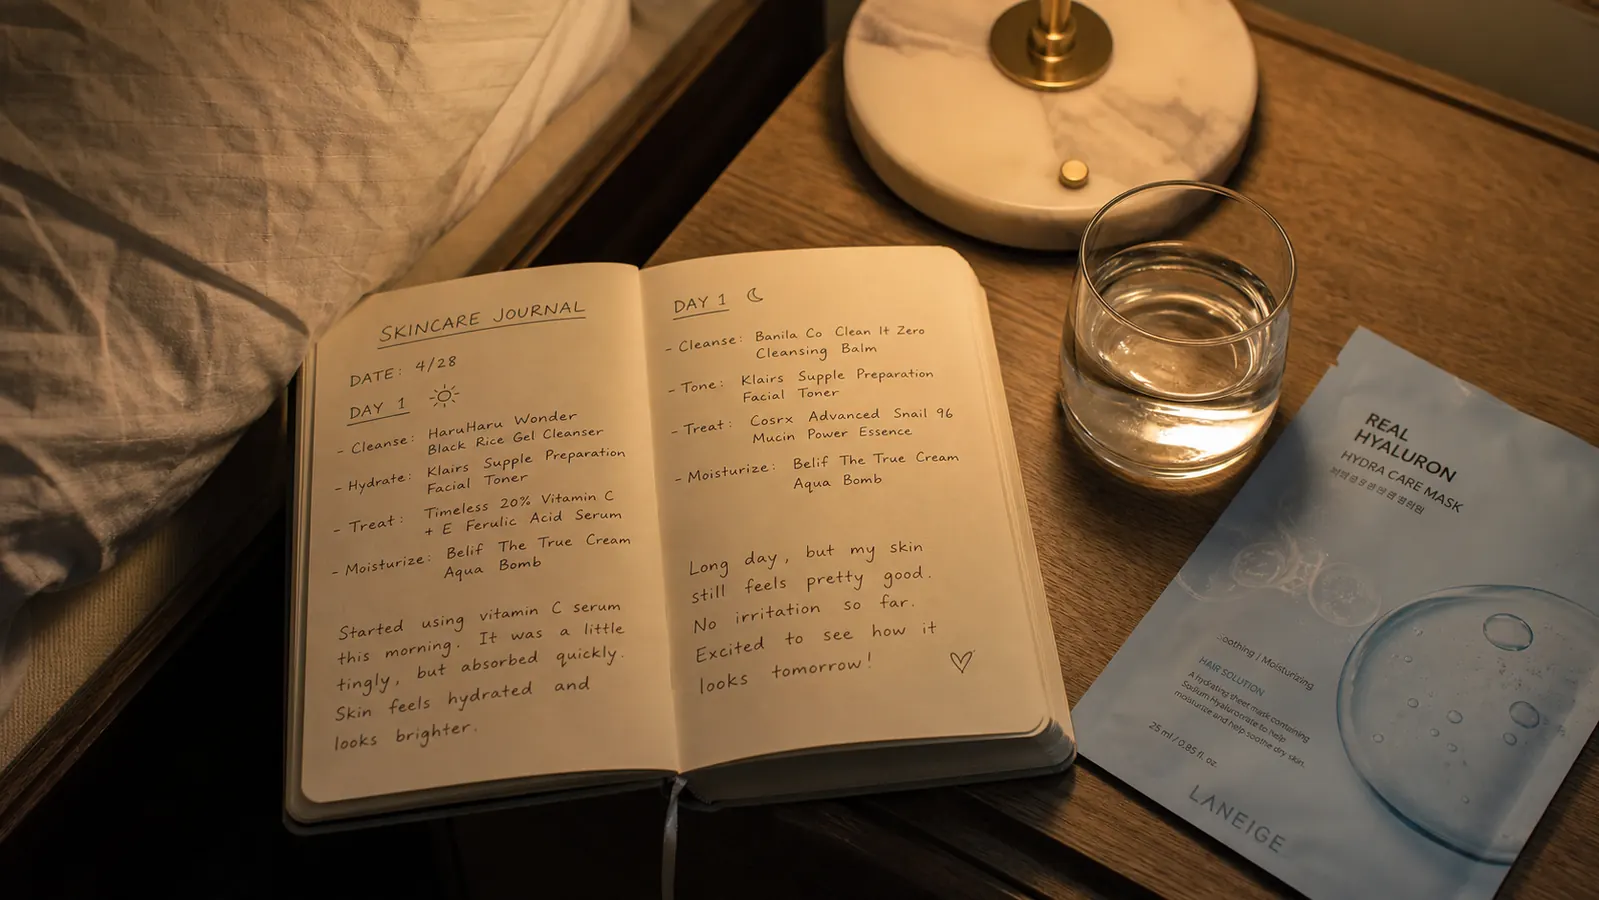 SKINCARE JOURNAL
DATE: 4/28
DAY 1
- Cleanse: HaruHaru Wonder
Black Rice Gel Cleanser
- Hydrate: Klairs Supple Preparation
Facial Toner
- Treat: Timeless 20% Vitamin C
+ E Ferulic Acid Serum
- Moisturize: Belif The True Cream
Aqua Bomb
Started using vitamin C serum
this morning. It was a little
tingly, but absorbed quickly.
Skin feels hydrated and
looks brighter.
DAY 1
- Cleanse: Banila Co Clean It Zero
Cleansing Balm
- Tone: Klairs Supple Preparation
Facial Toner
- Treat: Cosrx Advanced Snail 96
Mucin Power Essence
- Moisturize: Belif The True Cream
Aqua Bomb
Long day, but my skin
still feels pretty good.
No irritation so far.
Excited to see how it
looks tomorrow!
REAL
HYALURON
HYDRA CARE MASK
Soothing | Moisturizing
HAIR SOLUTION
A hydrating sheet mask containing
Sodium to help
moisturize and help soothe dry skin.
25 ml / 0.85 fl. oz.
LANEIGE